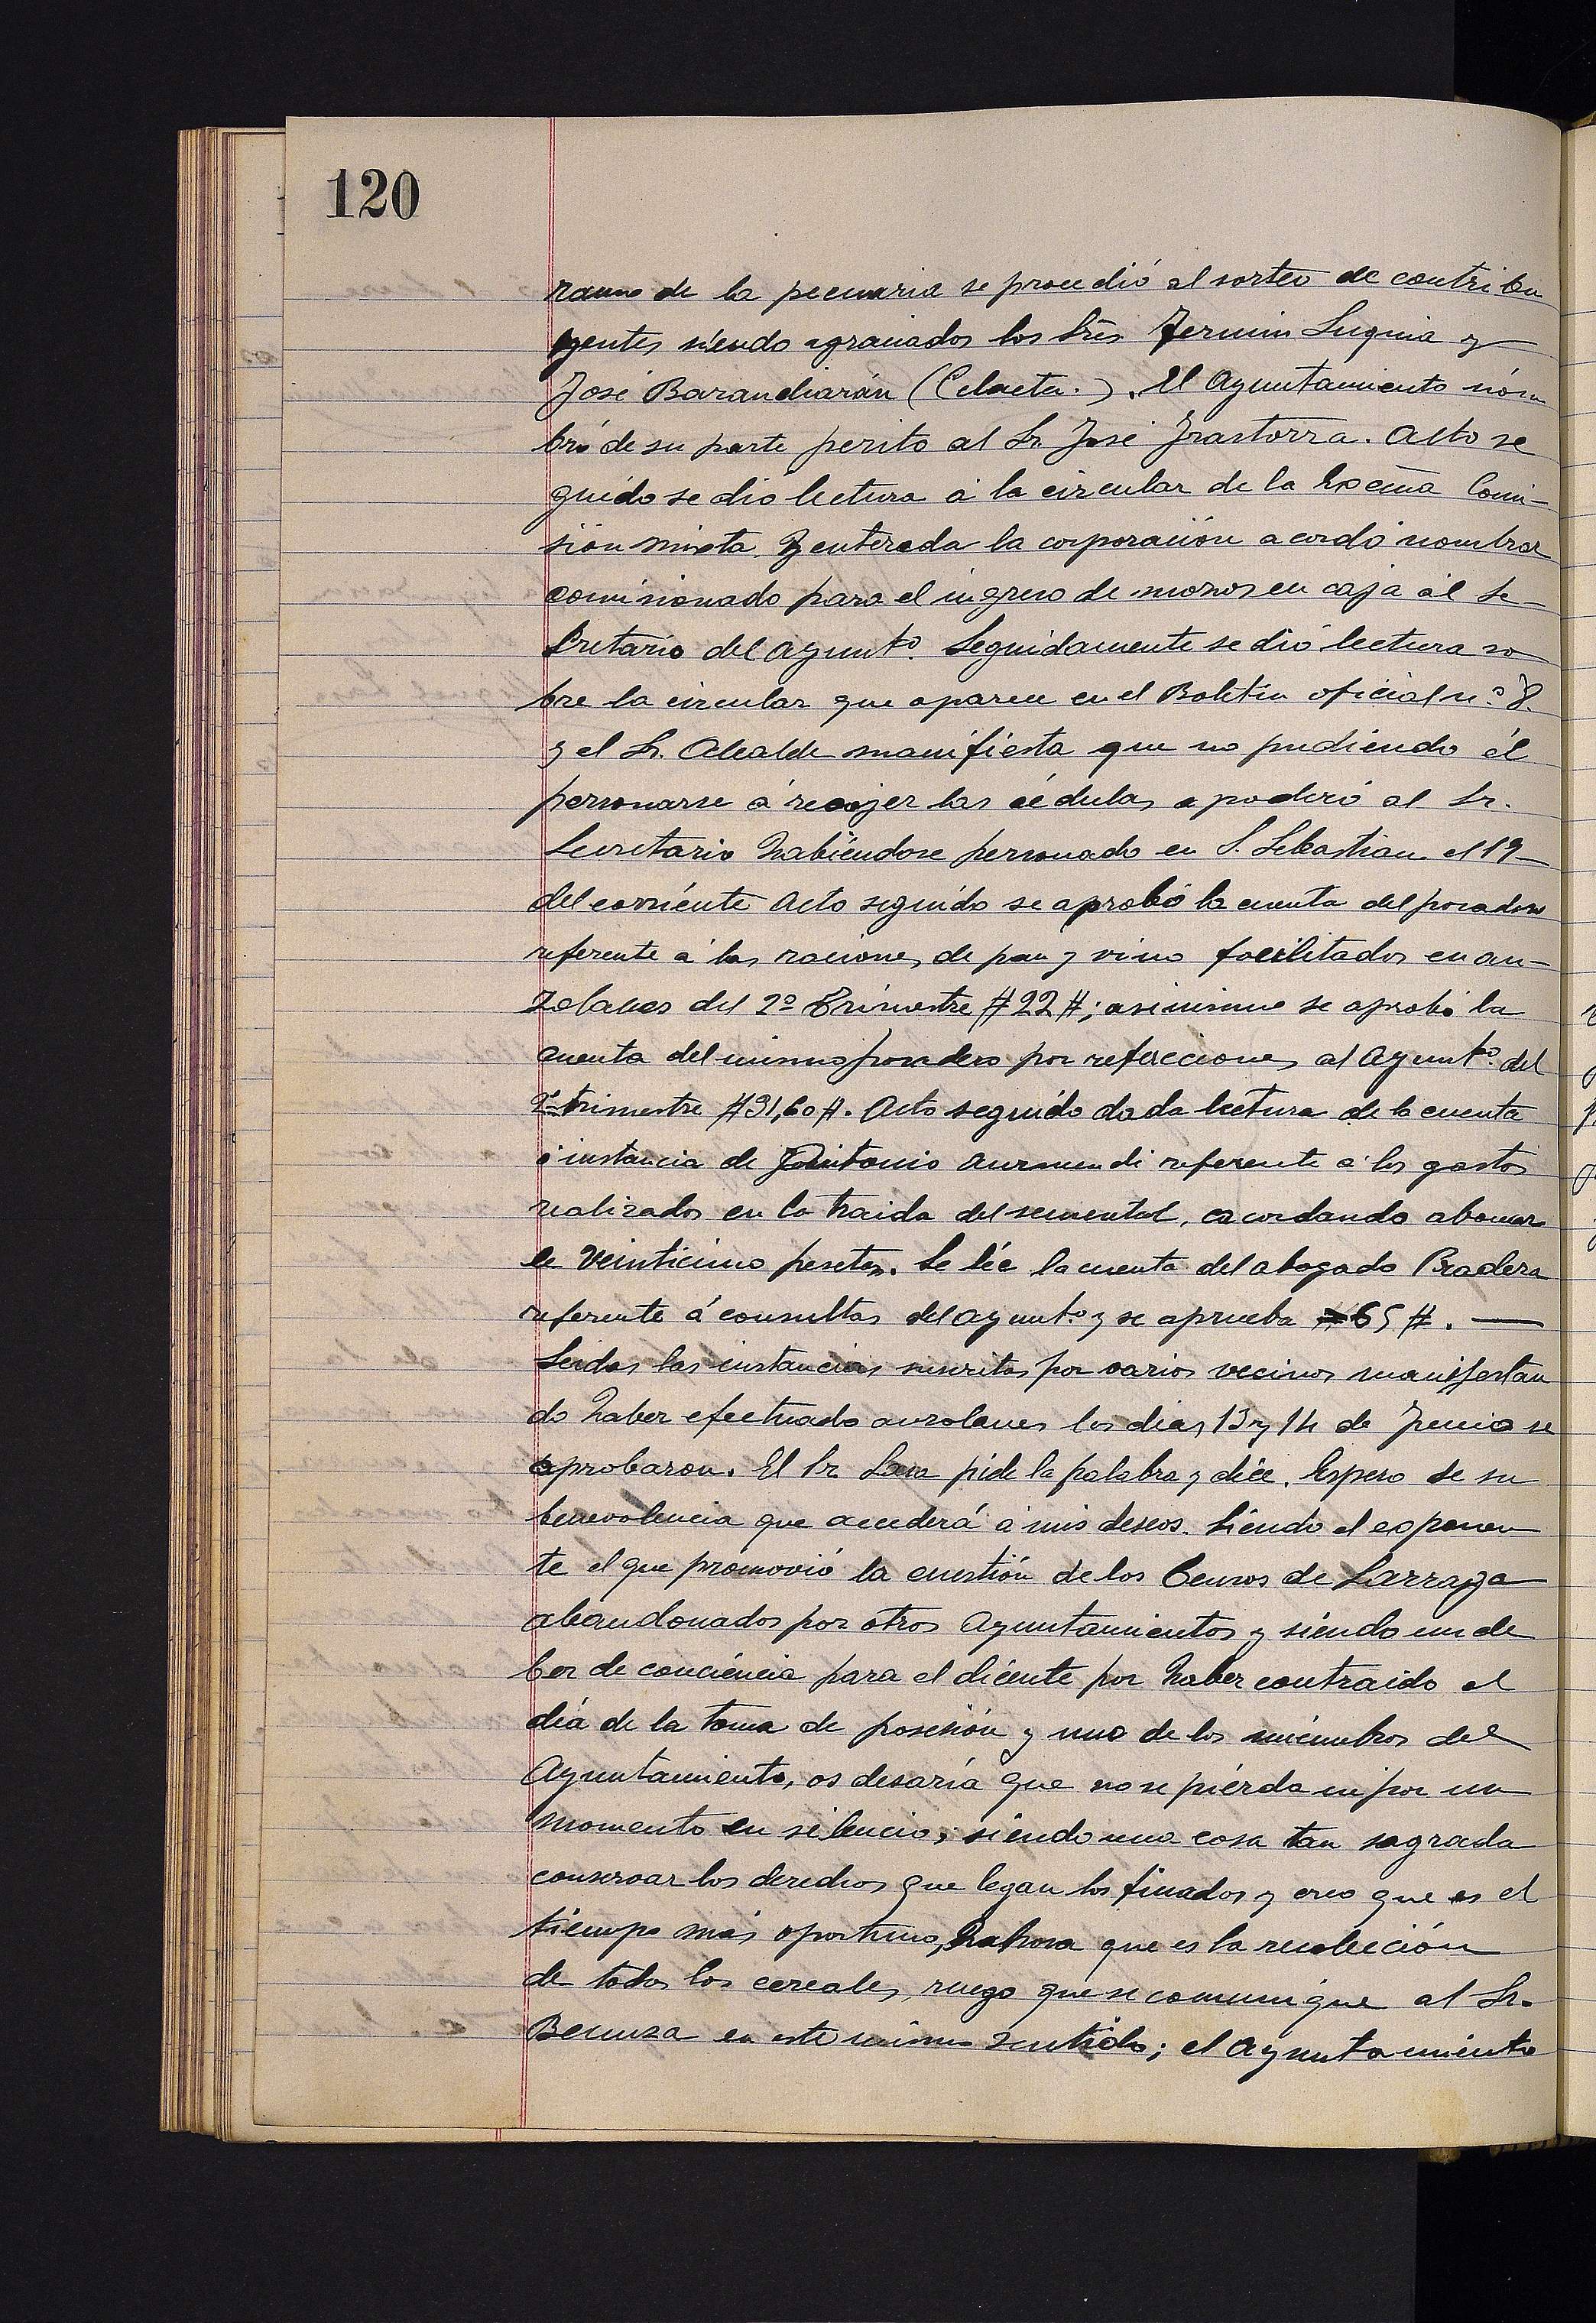 120
ramo de la pecuaria se procedió al sorteo de contribu
yentes siendo agraciados los Srēs Fermin Luquia y
José Barandiarán (Celaeta.). El Ayuntamiento nóm
bró de su parte perito al Sr. José Irastorza. Acto se
guido se dió lectura á la circular de la Excma Comi-
sión mixta y enterada la corporación acordó nombrar
comisionado para el ingreso de mozos en caja al Se-
cretario del Ayuntº. Seguidamente se dió lectura so
bre la circular que aparece en el Boletin oficial n.º 8.
y el Sr. Alcalde manifiesta que no pudiendo él
personarse á recojer las cédulas apoderó al Sr.
Secretario habiéndose personado en S. Sebastian el 19-
del corriente Acto seguido se aprobó la cuenta del posadero
referente á las raciones de pan y vino facilitados en au-
zolanes del 2º Trimestre #22#; asimismo se aprobó la
cuenta del mismo posadero por refecciones al Ayuntº. del
2º trimestre #31,60#. Acto seguido dada lectura de la cuenta
é instancia de Antonio Aurmendi referente á los gastos
realizados en la traida del semental, acordando abonar
le veinticinco pesetas. Se lée la cuenta del abogado Pradera
referente á consultas del ayuntº. y se aprueba #65#. —
Leidas las instancias suscritas por varios vecinos manifestan
do haber efectuado auzolanes los dias 13 y 14 de Junio se
aprobaron. El Sr. Lasa pide la palabra y dice. Espero de su
benevolencia que accederá á mis deseos. Siendo el exponen
te el que promovió la cuestión de los Censos de Larraga
abandonados por otros Ayuntamientos y siendo un de
ber de conciencia para el dicente por haber contraido el
día de la toma de posesión y uno de los miembros del
Ayuntamiento, os desaría que no se piérda ni por un
momento en silencio, siendo una cosa tan sagrada
conservar los derechos que legan los finados y creo que es el
tiempo más oportuno, ahora que es la recolección
de todos los cereales, ruego que se comunique al Sr.
Berunza en este mismo sentido; el Ayuntamiento